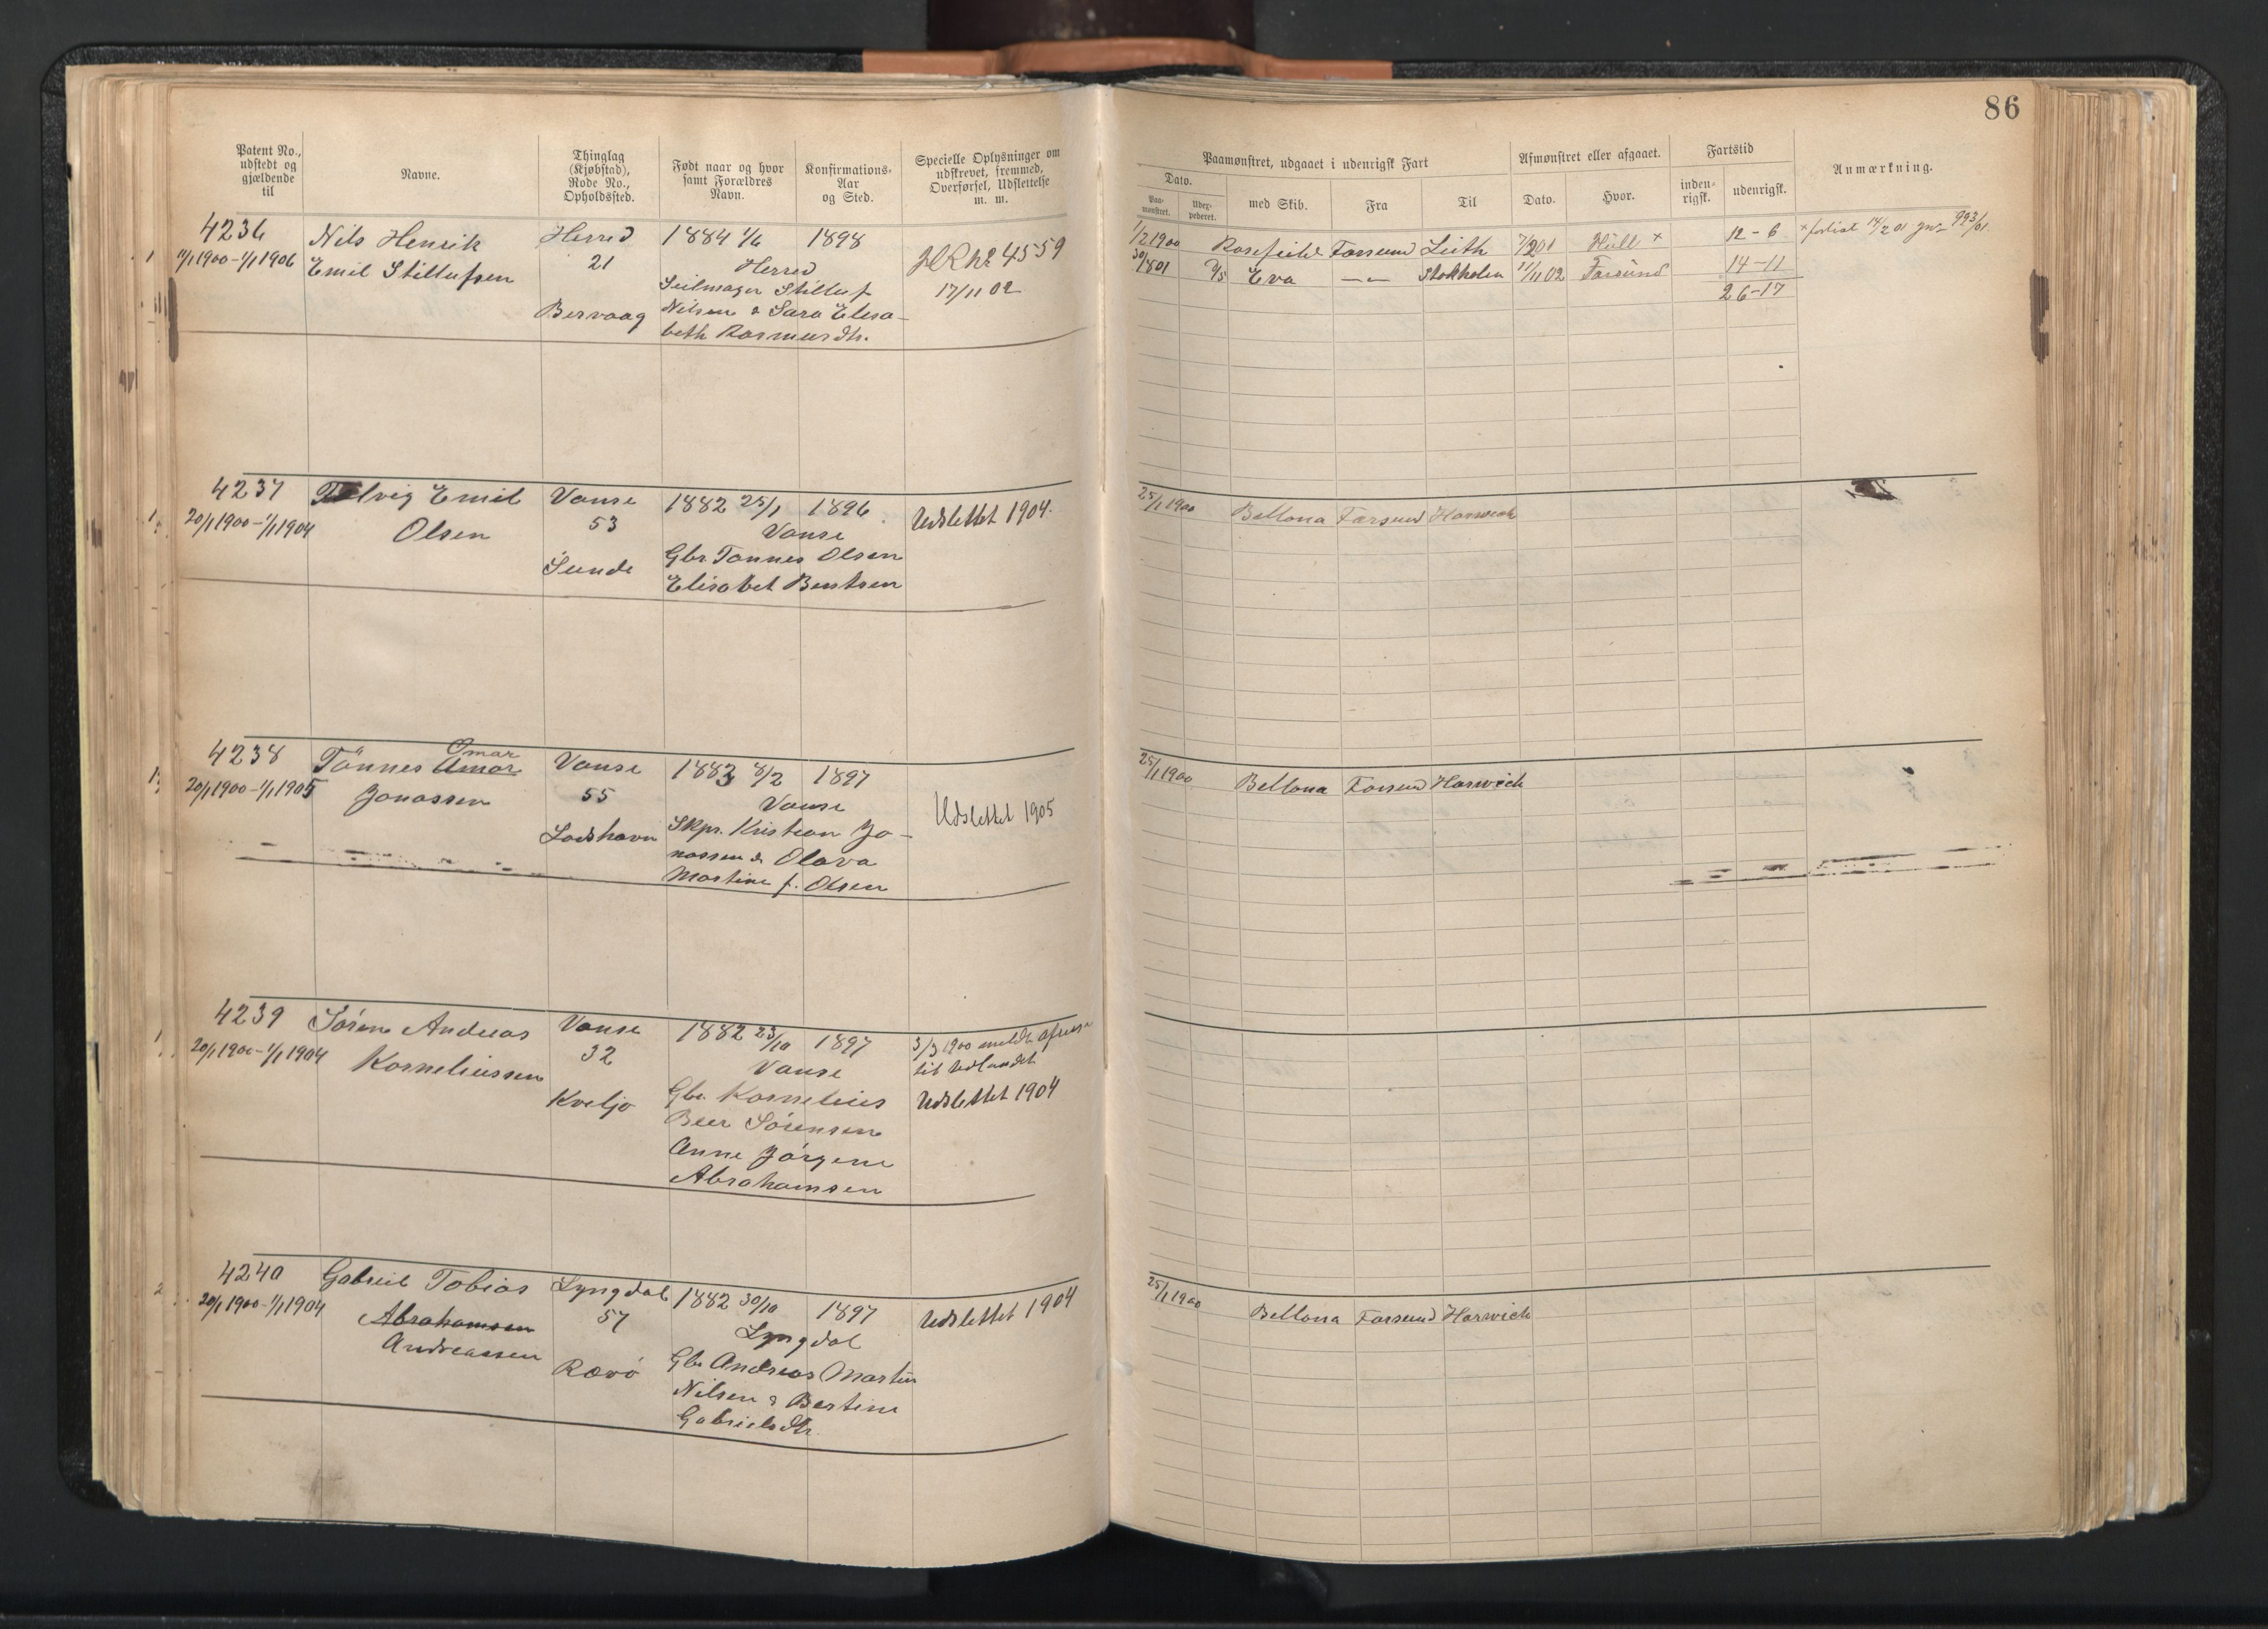 86
Patent No., udstedt og gjældende til
Navne.
Thinglag (Kjøbstad), Rode No., Opholdssted.
Født naar og hvor samt Forældres Navn.
Konfirmations-Aar og Sted.
Specielle Oplysninger om udskrevet, fremmed, Overførsel, Udslettelse m. m.
Paamønstret, udgaaet i udenrigsk Fart
Afmønstret eller afgaaet.
Fartstid
Anmærkning.
Dato.
Paa-mønstret.
med Skib.
Fra
Til
Dato.
Hvor.
inden-rigsk.
udenrigsk.
4236 Nils Henrik Herred 1884 1/6 1898
11/1 1900-1/1 1906 Emil Stillufsen 21 Herred
Seilmager Stilluf
Bervaag Nilsen & Sara Elisa-
beth Rasmusdtr.
No 4559
17/11 02
1/2 1900 Farsund Leith 7/2 01 Hull × 12-6
Eva —"— Stokholm 11/11 02 Farsund 14-11
26-17
4237 Emil Vanse 1882 25/1 1896 Udslettet 1904.
20/1 1900-1/1 1904 Olsen 53 Vanse
Sunde Gbr. Tønnes Olsen
Elisabet Bentsen
25/1 1900 Bellona Farsund Harwich
4238 Tønnes Amar Omar Vanse 1883 8/2 1897
20/1 1900-1/1 1905 Jonassen 55 Vanse Udslettet 1905
Loshavn Skpr. Kristian Jo-
nassen & Olava
Martine f. Olsen
25/1 1900 Bellona Farsund Harwich
4239 Søren Andreas Vanse 1882 23/10 1897 3/3 1900 meldt afreise
20/1 1900-1/1 1904 Korneliussen 32 Vanse til Udlandet
Kveljo Gbr. Kornelius Udslettet 1904
Beer Sørensen
Anne Jørgine
Abrahamsen
4240 Gabriel Tobias Lyngdal 1882 30/10 1897 Udslettet 1904
20/1 1900-1/1 1904 Abrahamsen 57 Lyngdal
Andreassen
Rævø Gbr. Andreas Martin
Nilsen & Bertine
Gabrielsdtr.
25/1 1900 Bellona Farsund Harwich